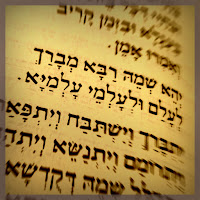 וּבִזְמַן קָרִיב
וְאִמְרוּ אָמֵן.
יְהֵא שְׁמֵהּ רַבָּא מְבָרַךְ
לְעָלַם וּלְעָלְמֵי עָלְמַיָּא.
יִתְבָּרַךְ וְיִשְׁתַּבַּח וְיִתְפָּאַ
וְיִתְרוֹמַם וְיִתְנַשֵּׂא וְיִתְהַ
שְׁמֵהּ דְּקֻדְשָׁא